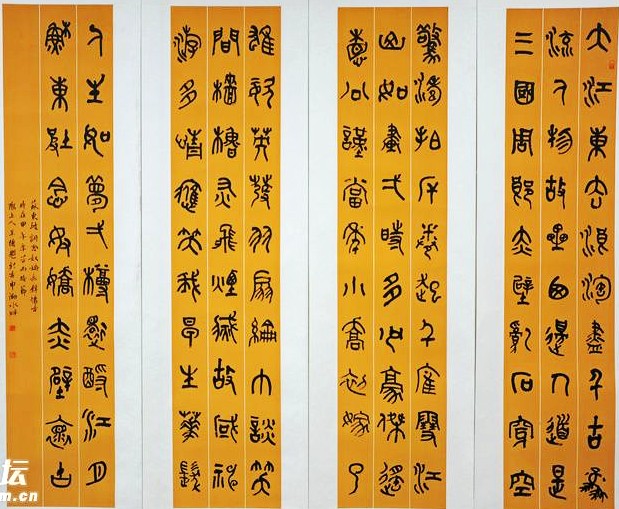 大江東去浪淘盡千古風
流人物故壘西邊人道是
三國周郎赤壁亂石穿空
驚濤拍岸卷起千堆雪江
山如畫弌時多少豪傑遙
想公瑾當年小喬初嫁了
雄姿英發羽扇綸巾談笑
間檣櫓灰飛煙滅故國神
遊多情應笑我早生華髮
人生如夢弌樽還酹江月
蘇東坡念奴嬌赤壁懷古
蘇東坡詞念奴嬌赤壁懷古
坛
m.cn